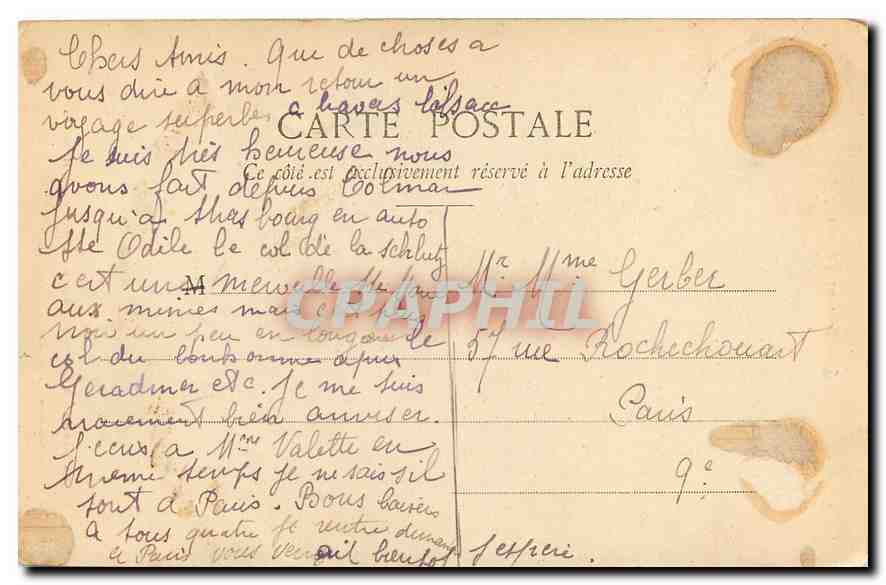 Chers Amis. Que de choses a
vous dire a mon retour un
voyage superbe a travers l'Alsace
CARTE POSTALE
Je suis très heureuse nous
Ce côté est exclusivement réservé à l'adresse
avons fait depuis Colmar
jusqu'a Strasbourg en auto
Ste Odile le col de la Schlutz
c'est une merveille Ste
M
aux mines mais
un peu en le
col du bonhomme apres
Geradmer etc. Je me suis
vraiment bien amuser.
J'ecris a Mme Valette en
meme temps je ne sais s'il
sont a Paris. Bons baisers
a tous quatre je rentre
a Paris vous bientot j'espere.
Mr Mme Gerber
57 rue Rochechouart
Paris
9e
CPAPHIL